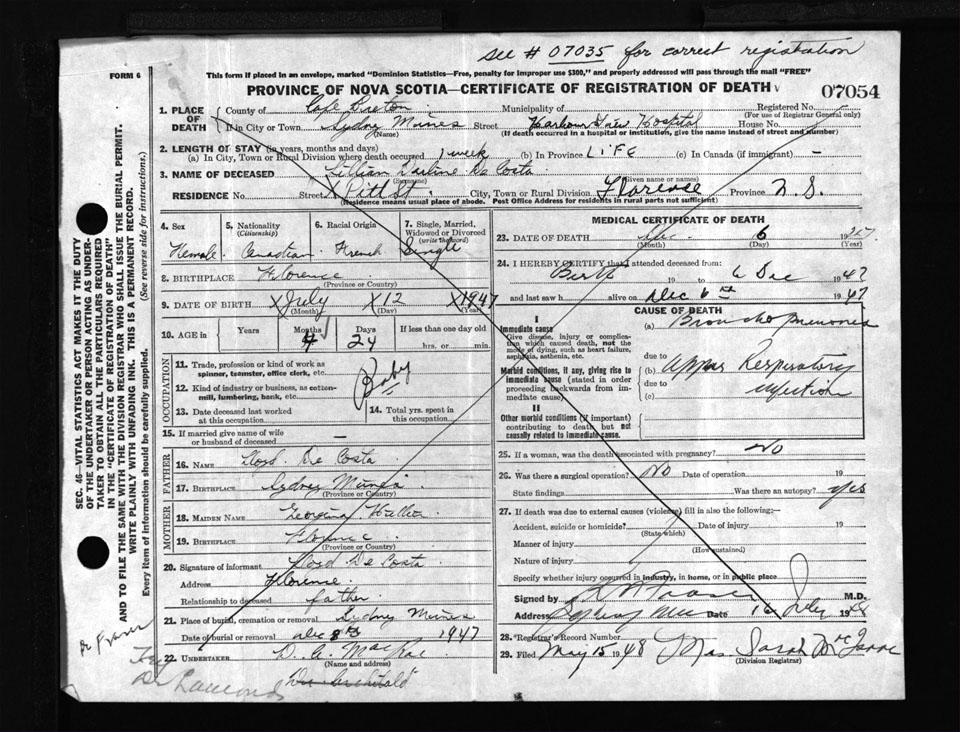 see # 07035 for correct registration
FORM 6
This form if placed in an envelope, marked "Dominion Statistics—Free, penalty for improper use $300," and properly addressed will pass through the mail "FREE"
PROVINCE OF NOVA SCOTIA—CERTIFICATE OF REGISTRATION OF DEATH
07054
1. PLACE OF DEATH
County of Cape Breton Municipality of Registered No.
(For use of Registrar General only)
If in City or Town Sydney Mines Street Harbour View Hospital House No.
(Name) (If death occurred in a hospital or institution, give the name instead of street and number)
2. LENGTH OF STAY (in years, months and days)
(a) In City, Town or Rural Division where death occurred 1 week (b) In Province LIFE (c) In Canada (if immigrant) —
3. NAME OF DECEASED Lillian Darline De Costa
(Surname) (Given name or names)
RESIDENCE No. Street Pitt St. City, Town or Rural Division Florence Province N.S.
(Residence means usual place of abode. Post Office Address for residents in rural parts not sufficient)
4. Sex 5. Nationality (Citizenship) 6. Racial Origin 7. Single, Married, Widowed or Divorced (write the word)
Female Canadian French Single
8. BIRTHPLACE Florence
(Province or Country)
9. DATE OF BIRTH July 12 1947
(Month) (Day) (Year)
10. AGE in Years Months Days If less than one day old
4 24 hrs. or min.
OCCUPATION
11. Trade, profession or kind of work as spinner, teamster, office clerk, etc.
12. Kind of industry or business, as cotton-mill, lumbering, bank, etc.
Baby
13. Date deceased last worked at this occupation
14. Total yrs. spent in this occupation
15. If married give name of wife or husband of deceased —
FATHER
16. NAME Lloyd De Costa
17. BIRTHPLACE Sydney Mines
(Province or Country)
MOTHER
18. MAIDEN NAME Georgina
19. BIRTHPLACE Florence
(Province or Country)
20. Signature of informant Lloyd De Costa
Address Florence
Relationship to deceased father
21. Place of burial, cremation or removal Sydney Mines
Date of burial or removal Dec 8th 1947
22. UNDERTAKER D. A. MacRae
(Name and address)
MEDICAL CERTIFICATE OF DEATH
23. DATE OF DEATH Dec. 6 1947
(Month) (Day) (Year)
24. I HEREBY CERTIFY that I attended deceased from:
Birth 19 to 6 Dec 1947
and last saw h alive on Dec 6th 1947
CAUSE OF DEATH
I
Immediate cause
Give disease, injury or complication which caused death, not the mode of dying, such as heart failure, asphyxia, asthenia, etc.
(a) Bronchopneumonia
due to
Morbid conditions, if any, giving rise to immediate cause (stated in order proceeding backwards from immediate cause)
(b) Upper Respiratory
due to
(c) infection
II
Other morbid conditions (if important) contributing to death but not causally related to immediate cause.
25. If a woman, was the death associated with pregnancy? NO
26. Was there a surgical operation? NO Date of operation 19
State findings Was there an autopsy? yes
27. If death was due to external causes (violence) fill in also the following:—
Accident, suicide or homicide? Date of injury 19
(State which)
Manner of injury
(How sustained)
Nature of injury
Specify whether injury occurred in industry, in home, or in public place
Signed by Fraser M.D.
Address Sydney Mines Date 16 July 1948
28. Registrar's Record Number
29. Filed May 15 1948 Mrs. Sarah
(Division Registrar)
SEC. 46—VITAL STATISTICS ACT MAKES IT THE DUTY OF THE UNDERTAKER OR PERSON ACTING AS UNDERTAKER TO OBTAIN ALL THE PARTICULARS REQUIRED IN THE "CERTIFICATE OF REGISTRATION OF DEATH" AND TO FILE THE SAME WITH THE DIVISION REGISTRAR WHO SHALL ISSUE THE BURIAL PERMIT.
WRITE PLAINLY WITH UNFADING INK. THIS IS A PERMANENT RECORD.
Every Item of Information should be carefully supplied. (See reverse side for instructions.)
Dr Fraser